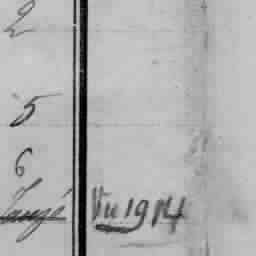 2
5
6
Vu 1914